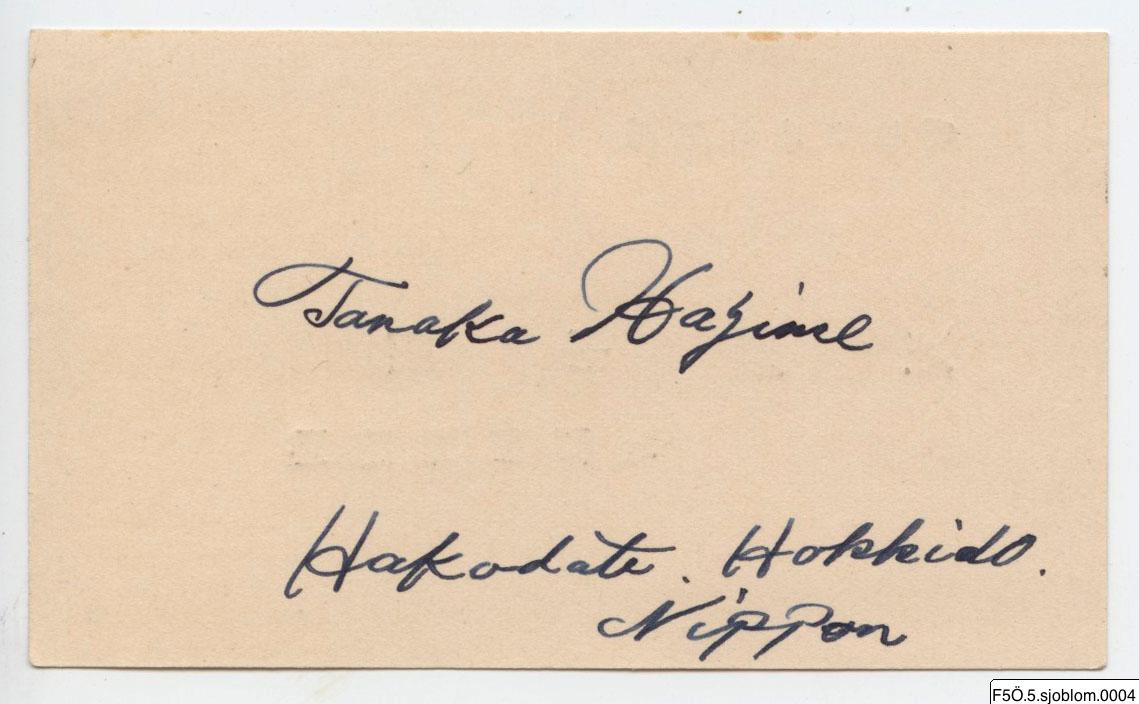 Tanaka Hazime
Hakodate. Hokkido.
Nippon
F5Ö.5.sjoblom.0004